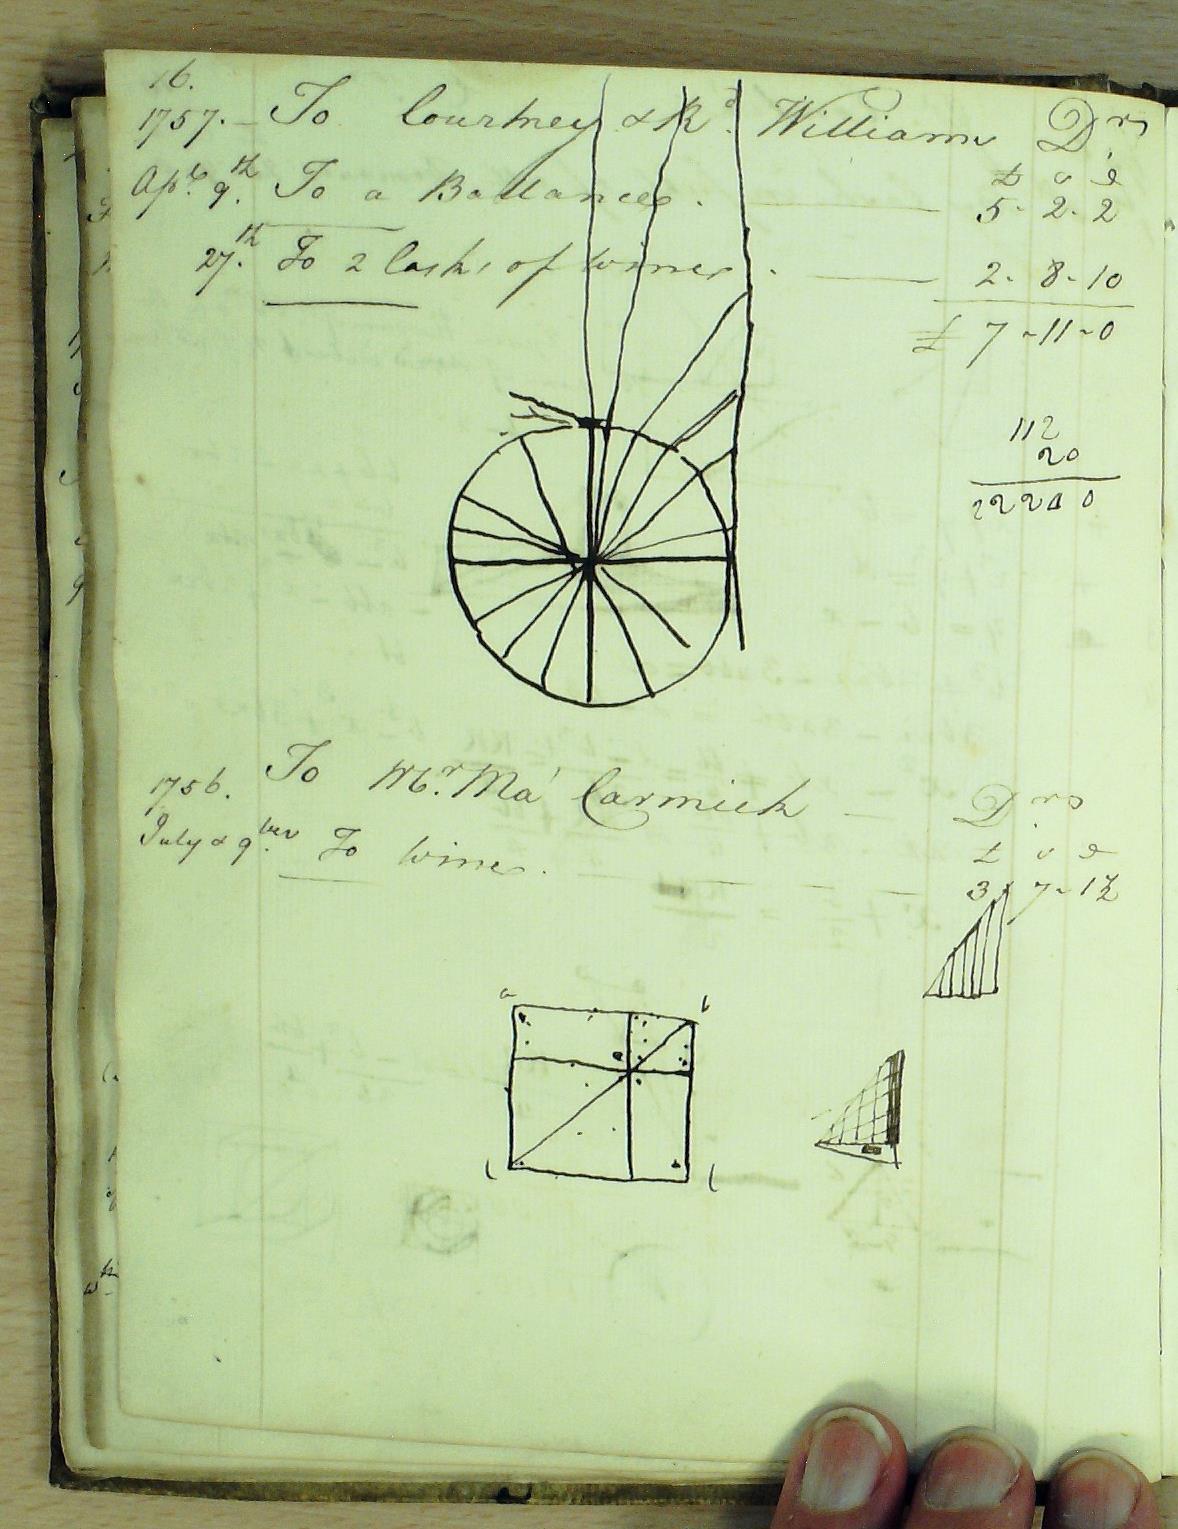 16.
1757. To Courtney & Rd. William Drs
Apl. 9th. To a Ballance. £ s d
5 - 2 - 2
27.th To 2 Cask, of wine. 2 - 8 - 10
£ 7 - 11 - 0
112
20
1756. To Mr. Ma' Carmick Drs
July & 9ber. To wine. £ s d
3 7 - 1
a b